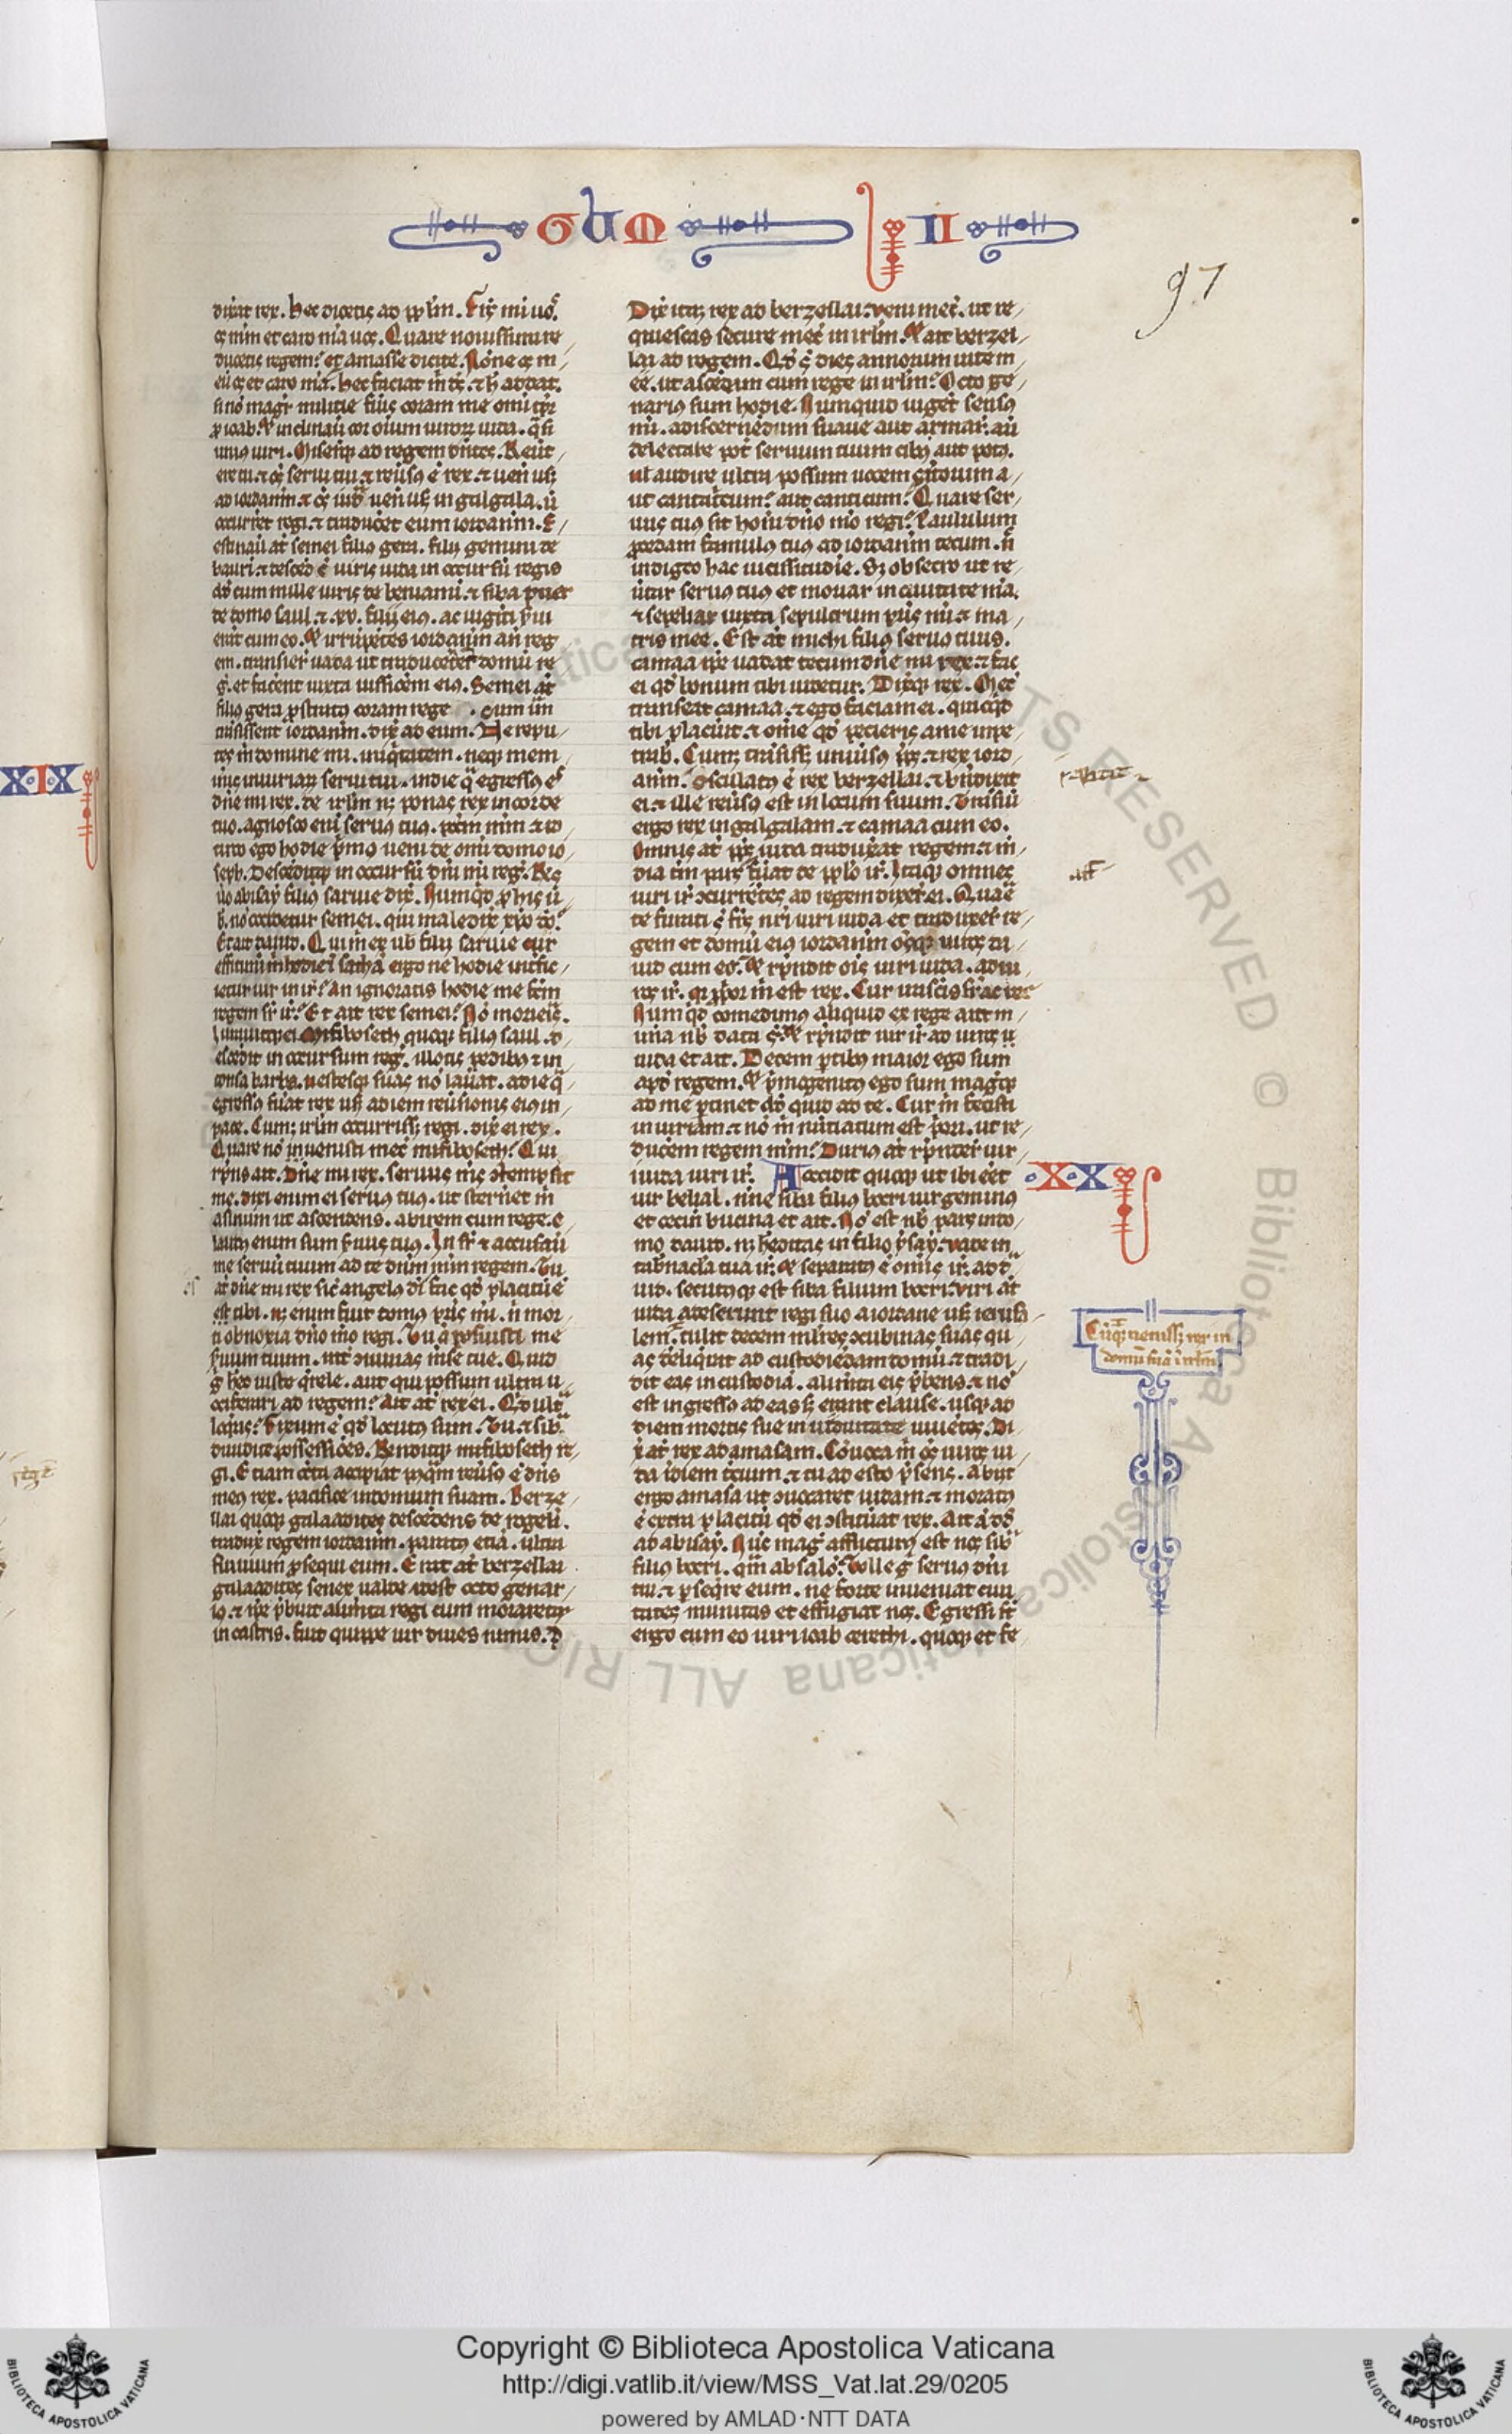 GUM II
97
dixit rex. hec dicetis ad pplm. Frs mi uos.
os mm et caro mea uos. Quare nouissimi re
ducetis regem? et amasse dicite. Nonne os m
eu es et caro mea. hec faciat m ds. et h addat.
si no magr militie fuis coram me omi tpr
p ioab. Et inclinauit cor oium uirorum iuda. qsi
unius uiri. Miseruntq ad regem dntes. Reut
ere tu. et os serui tui. et reuersus e rex. et uenit usq
ad iordanem et os iuda uenit usq in galgala. ut
occurret regi. et traducet eum iordanem. F
estinauit at semei filius gera. filij gemini de
baurim et descend e uiris iuda in occursu regis
dd cum mille uiris de beniami. et siba puer
de domo saul. et .xv. filij eius. ac uiginti serui
erat cum eo. Et irrupetes iordanem an reg
em. transier uada ut traduceret domu re
gis. et facent iuxta iussionem eius. Semei at
filius gera prostratus coram rege. cum iam
transissent iordanem. dix ad eum. Ne repu
tes m domine mi. iniqtatem. neq mem
inis iniuriarum serui tui. in die qua egressus es
dne mi rex. de irlm nq ponas rex in corde
tuo. agnosco eni seruus tuus. pctm mm et id
circo ego hodie primus ueni de omi domo io
seph. Descediq in occursu dni mi regis. Res
uo abisay filius saruie dix. Numqd p his u
bis no occidetur semei. qui maledix xpo dni?
Et ait dauid. Qui m et uob filij saruie cur
efficimini m hodie i sathan ergo ne hodie intfic
ietur uir in isrl? an ignoratis hodie me fcm
regem sr isrl? Et ait rex semei. No morieris.
Iurauitq ei. Mifiboseth quoq filius saul. d
escedit in occursum regis. illotis pedibus et in
tonsa barba. uestesq suas no lauat. a die q
egressus fuat rex usq ad iem reusionis eius in
pace. Cumq irlm occurrisset regi. dix ei rex.
Quare no inuenisti mec mifiboseth? Qui
rpns ait. Dne mi rex. seruus ms ctempsit
me. dixi enim ei seruus tuus. ut sternet m
asinum ut ascendens. abirem cum rege. c
laudus enim sum seruus tuus. Insr et accusauit
me seruu tuum ad te dnm mm regem. Tu
at dne mi rex sic angelus di fac qd placitu e
est tibi. nq enim fuit domus patris mi. n mor
ti obnoxia dno mo regi. Tu at posuisti me
seruum tuum. int conuiuas mense tue. Quid
g heo iuste querele. aut qui possum ultra u
ociferari ad regem? Ait at rex ei. Quid ulta
loqris? Fixum e qd locutus sum. Tu et siba
diuidite possessiones. Renditq mifiboseth re
gi. Etiam cuncta accipiat postqm reusus e dns
meus rex. pacifice in domum suam. Berze
llai quoq galaadites descedens de rogeli.
tradux regem iordanem. paratus etia. ultra
fluuium psequi eum. Erat at berzellai
galaadites senex ualde idest octo genar
ius. et ipe pbuit alimta regi cum moraretur
in castris. fuit quippe uir diues nimis. D
Dix itaq rex ad berzellai: veni mec. ut re
quiescas secure mec in irlm. Et ait berzel
lai ad regem. Qd st dies annorum uite m
ee. ut ascedam cum rege in irlm? Octo ge
narius sum hodie. Numquid uiget sensus
mi. ad iscernedum suaue aut amar. aut
delectare pot seruum tuum cibus aut potus.
uel audire ultra possum uocem cantorum a
ut cantatricum? aut canticum? Quare ser
uus tuus sit honi dno mo regi? Paululum
pcedam famulus tuus ad iordanem tecum. n
indigeo hac uicissitudie. Sz obsecro ut re
uertar seruus tuus et moriar in ciuitate mea.
et sepeliar iuxta sepulcrum patris mi et ma
tris mee. Est at michi filius seruus tuus.
camaa ipe uadat tecum dne mi rex et fac
ei qd bonum tibi uidetur. Dixitq rex. Mec
transeat camaa. et ego faciam ei. quicqd
tibi placuit et ome qd petieris a me inpe
trabis. Cumq transisset uniuersus pplus et rex iord
anem. Osculatus e rex berzellai. et bndixit
ei et ille reusus est in locum suum. Transiuit
ergo rex in galgalam. et camaa cum eo.
Omnis at pplus iuda traduxat regem et m
dia tm pars fuat de pplo isrl. Itaq omnes
uiri isrl occurretes ad regem dixert ei. Quare
te furati st frs nri uiri iuda et traduxert re
gem et domu eius iordanem omsq uiros da
uid cum eo? Et rpndit ois uiri iuda. ad ui
ros isrl. qr ppior m est rex. Cur irascis sr hac re?
Numqd comedimus aliquid ex rege aut m
una nob data st? Et rpndit uir isrl ad uiros u
iuda et ait. Decem ptibus maior ego sum
apd regem. Et pmogenitus ego sum magisq
ad me ptinet dd quid ad te. Cur m fecisti
iniuriam. et no m nuntiatum est priori. ut re
ducem regem mm? Durius at rpnderut uiri
iuda uiri isrl. Accidit quoq ut ibi eet
uir belial. nne siba filius bocri uir geminus
et cecin bucina et ait. No est nob pars in do
mo dauid. nq heditas in filio ysay. uade in
tabnacula tua isrl. Et separatus e omis isrl a dd
uid. secutusq est siba filium bocri: viri at
iuda adeserunt regi suo a iordane usq ierusa
lem. tulit decem mulires concubinas suas qu
as deliquit ad custodiedam domu. et tradi
dit eas in custodia. alimta eis pbens. et no
est ingressus ad eas sz erant clause. usq ad
diem mortis sue in uiduitate uiuetes. Di
xit at rex ad amasam. Couoca m os uiros iu
da i diem tcium. et tu ad esto psens. Abiit
ergo amasa ut couocaret iudam. et moratus
e extra placitu qd ei constituat rex. Ait at dd
ad abisay. Nuc magis afflictur est nos sib
filius bocri. qm absalon. Tolle g seruos dni
tui. et pseqre eum. ne forte inueniat ciui
tates munitas et effugiat nos. Egressi st
ergo cum eo uiri ioab cerethi. quoq et fe
XIX
XX
Cuq uenisset rex in
domu sua i irlm